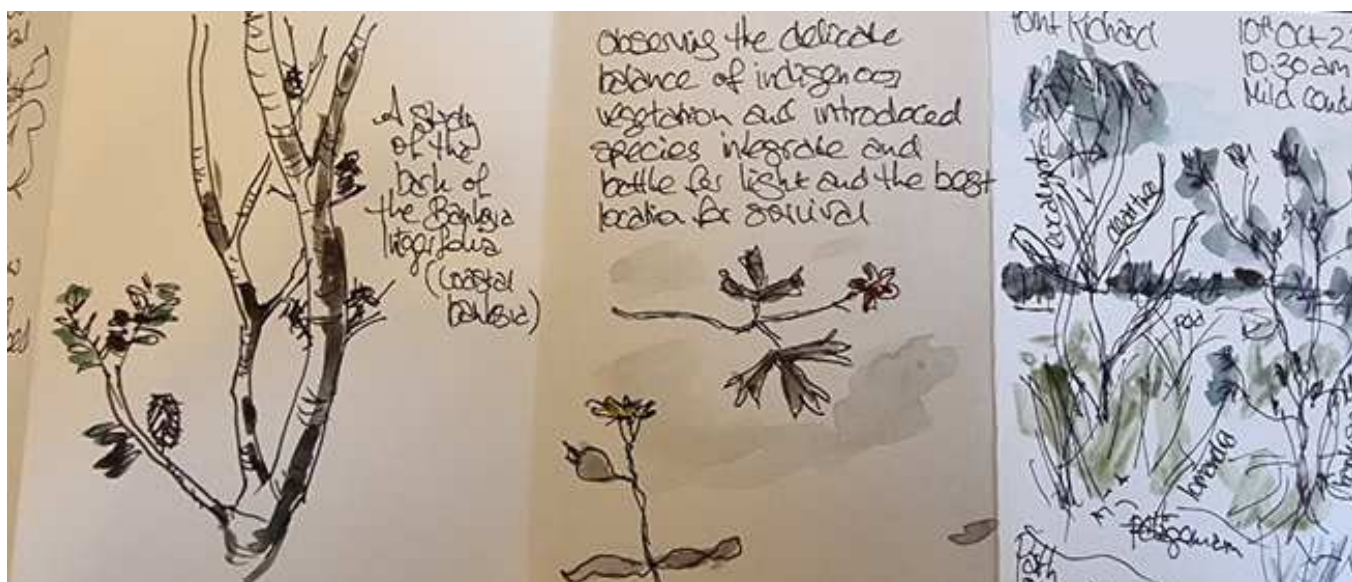 A Study
of the
bark of
the Banksia
Integrifolia
(coastal
banksia)
observing the delicate
balance of indigenous
vegetation and introduced
species integrate and
battle for light and the best
location for survival
Point Richard
10th Oct 2
10.30am
Mild cond
eucalypt
pea
lomandra
pelagonium
Path